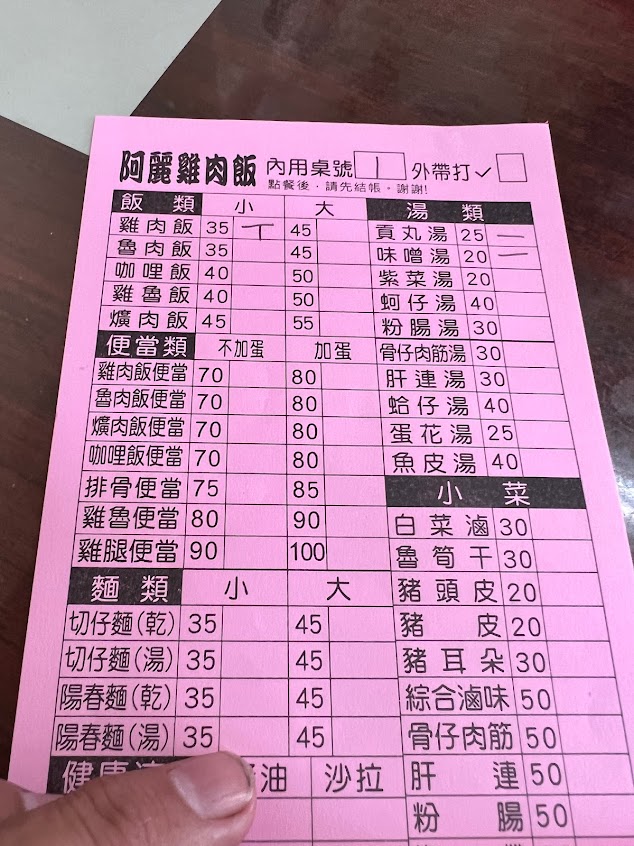 阿麗雞肉飯 內用桌號 1 外帶打✓
點餐後，請先結帳。謝謝!
飯類 小 大
雞肉飯 35 ㄒ 45
魯肉飯 35 45
咖哩飯 40 50
雞魯飯 40 50
爌肉飯 45 55
便當類 不加蛋 加蛋
雞肉飯便當 70 80
魯肉飯便當 70 80
爌肉飯便當 70 80
咖哩飯便當 70 80
排骨便當 75 85
雞魯便當 80 90
雞腿便當 90 100
麵類 小 大
切仔麵(乾) 35 45
切仔麵(湯) 35 45
陽春麵(乾) 35 45
陽春麵(湯) 35 45
健康 油 沙拉
湯類
貢丸湯 25 一
味噌湯 20 一
紫菜湯 20
蚵仔湯 40
粉腸湯 30
骨仔肉筋湯 30
肝連湯 30
蛤仔湯 40
蛋花湯 25
魚皮湯 40
小菜
白菜滷 30
魯筍干 30
豬頭皮 20
豬皮 20
豬耳朵 30
綜合滷味 50
骨仔肉筋 50
肝連 50
粉腸 50